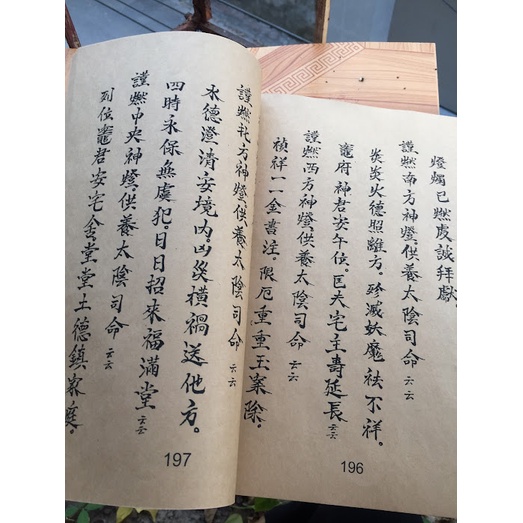 燈燭已燃虔誠拜獻。
謹燃南方神燈、供養太陰司命云云
炎炎火德照離方。殄滅妖魔祛不祥。
竈府神君安午位。匡夫宅主壽延長云云
謹燃西方神燈、供養太陰司命云云
禎祥一一金書注。限厄重重玉案除。
196
謹燃北方神燈、供養太陰司命云云
水德澄清安境內。凶災橫禍送他方。
四時永保無虞犯。日日招來福滿堂云云
謹燃中央神燈、供養太陰司命云云
列位竈君安宅舍堂堂土德鎮家庭。
197